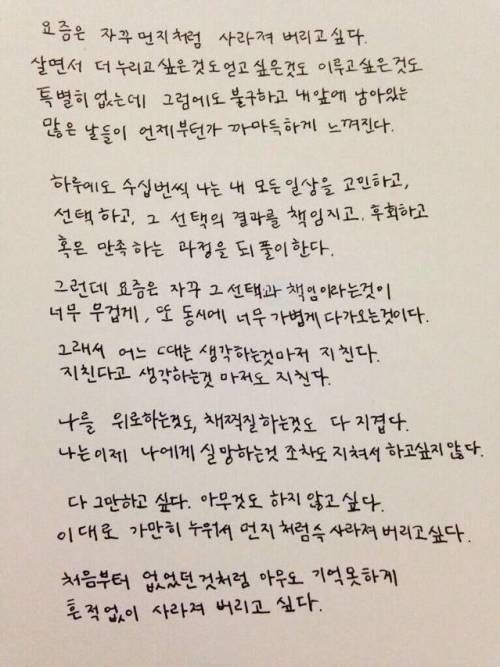 요즘은 자꾸 먼지처럼 사라져 버리고 싶다.
살면서 더 누리고 싶은것도 얻고 싶은것도 이루고 싶은것도
특별히 없는데 그럼에도 불구하고 내 앞에 남아있는
많은 날들이 언제부턴가 까마득하게 느껴진다.
하루에도 수십번씩 나는 내 모든 일상을 고민하고,
선택하고, 그 선택의 결과를 책임지고, 후회하고
혹은 만족하는 과정을 되풀이한다.
그런데 요즘은 자꾸 그 선택과 책임이라는것이
너무 무겁게, 또 동시에 너무 가볍게 다가오는것이다.
그래서 어느 때는 생각하는것마저 지친다.
지친다고 생각하는것 마저도 지친다.
나를 위로하는것도, 채찍질하는것도 다 지겹다.
나는 이제 나에게 실망하는것 조차도 지쳐서 하고싶지 않다.
다 그만하고 싶다. 아무것도 하지 않고 싶다.
이대로 가만히 누워서 먼지처럼 슥 사라져 버리고 싶다.
처음부터 없었던 것처럼 아무도 기억못하게
흔적없이 사라져 버리고 싶다.